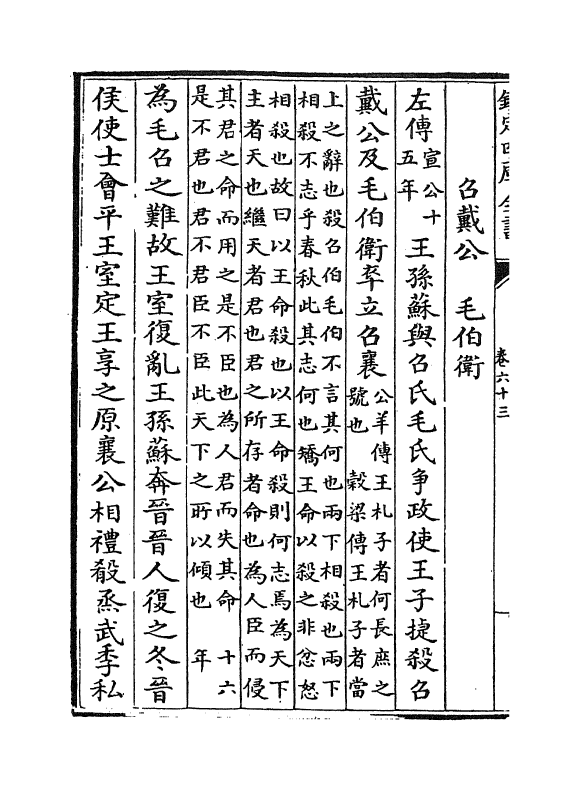 欽定四庫全書 卷六十三
召戴公 毛伯衛
左傳 宣公十
五年
王孫蘇與召氏毛氏争政使王子捷殺召
戴公及毛伯衛卒立召襄
公羊傳王札子者何長庶之
號也 榖梁傳王札子者當
上之辭也殺召伯毛伯不言其何也兩下相殺也兩下
相殺不志乎春秋此其志何也矯王命以殺之非忿怒
相殺也故曰以王命殺也以王命殺則何志焉為天下
主者天也繼天者君也君之所存者命也為人臣而侵
其君之命而用之是不臣也為人君而失其命
是不君也君不君臣不臣此天下之所以傾也
十六
年
為毛召之難故王室復亂王孫蘇奔晉晉人復之冬晉
侯使士會平王室定王享之原襄公相禮殽烝武季私